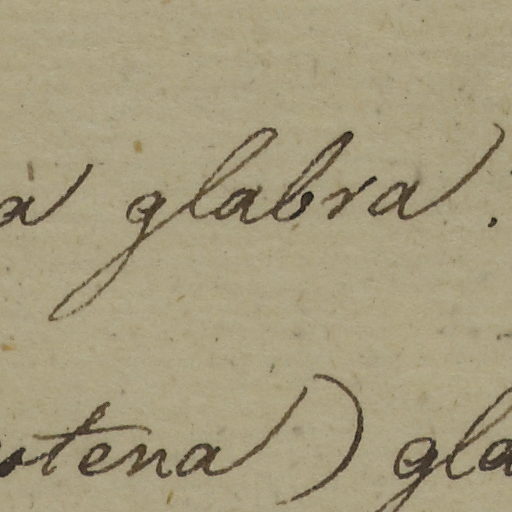 a glabra.
tena) gla